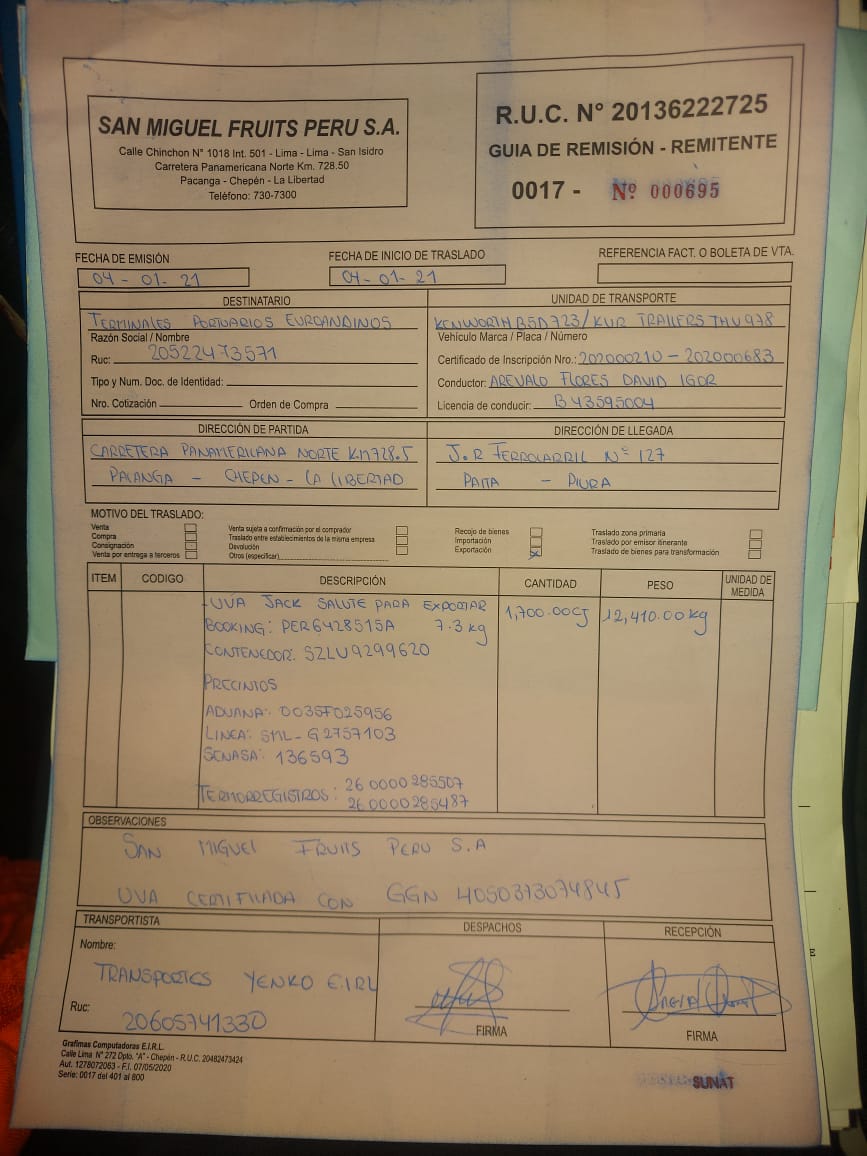 SAN MIGUEL FRUITS PERU S.A.
Calle Chinchon N° 1018 Int. 501 - Lima - Lima - San Isidro
Carretera Panamericana Norte Km. 728.50
Pacanga - Chepén - La Libertad
Teléfono: 730-7300
R.U.C. N° 20136222725
GUIA DE REMISIÓN - REMITENTE
0017 - Nº 000695
FECHA DE EMISIÓN
04 - 01 - 21
FECHA DE INICIO DE TRASLADO
04 - 01 - 21
REFERENCIA FACT. O BOLETA DE VTA.
DESTINATARIO
TERMINALES PORTUARIOS EUROANDINOS
Razón Social / Nombre
Ruc: 20522473571
Tipo y Num. Doc. de Identidad:
Nro. Cotización Orden de Compra
UNIDAD DE TRANSPORTE
KENWORTH B5D723/KUR TRAILERS THU978
Vehículo Marca / Placa / Número
Certificado de Inscripción Nro.: 202000210 - 202000683
Conductor: AREVALO FLORES DAVID IGOR
Licencia de conducir: B43595004
DIRECCIÓN DE PARTIDA
CARRETERA PANAMERICANA NORTE KM728.5
PACANGA - CHEPEN - LA LIBERTAD
DIRECCIÓN DE LLEGADA
J.R FERROCARRIL N° 127
PAITA - PIURA
MOTIVO DEL TRASLADO:
Venta
Compra
Consignación
Venta por entrega a terceros
Venta sujeta a confirmación por el comprador
Traslado entre establecimientos de la misma empresa
Devolución
Otros (especificar)
Recojo de bienes
Importación
Exportación X
Traslado zona primaria
Traslado por emisor itinerante
Traslado de bienes para transformación
ITEM CODIGO DESCRIPCIÓN CANTIDAD PESO UNIDAD DE MEDIDA
-UVA JACK SALUTE PARA EXPORTAR 1,700.00CJ 12,410.00kg
BOOKING: PER6428515A 7.3 kg
CONTENEDOR: SZLU9299620
PRECINTOS
ADUANA: 0035F025956
LINEA: SML-G2757103
SENASA: 136593
TERMORREGISTROS: 26 0000 285507
26 0000 285487
OBSERVACIONES
SAN MIGUEL FRUITS PERU S.A
UVA CERTIFICADA CON GGN 4050373074845
TRANSPORTISTA
Nombre:
TRANSPORTES YENKO E.I.RL
Ruc:
20605741330
DESPACHOS
FIRMA
RECEPCIÓN
FIRMA
Grafimas Computadoras E.I.R.L.
Calle Lima N° 272 Dpto. "A" - Chepén - R.U.C. 20482473424
Aut. 1278072063 - F.I. 07/05/2020
Serie: 0017 del 401 al 800
SUNAT